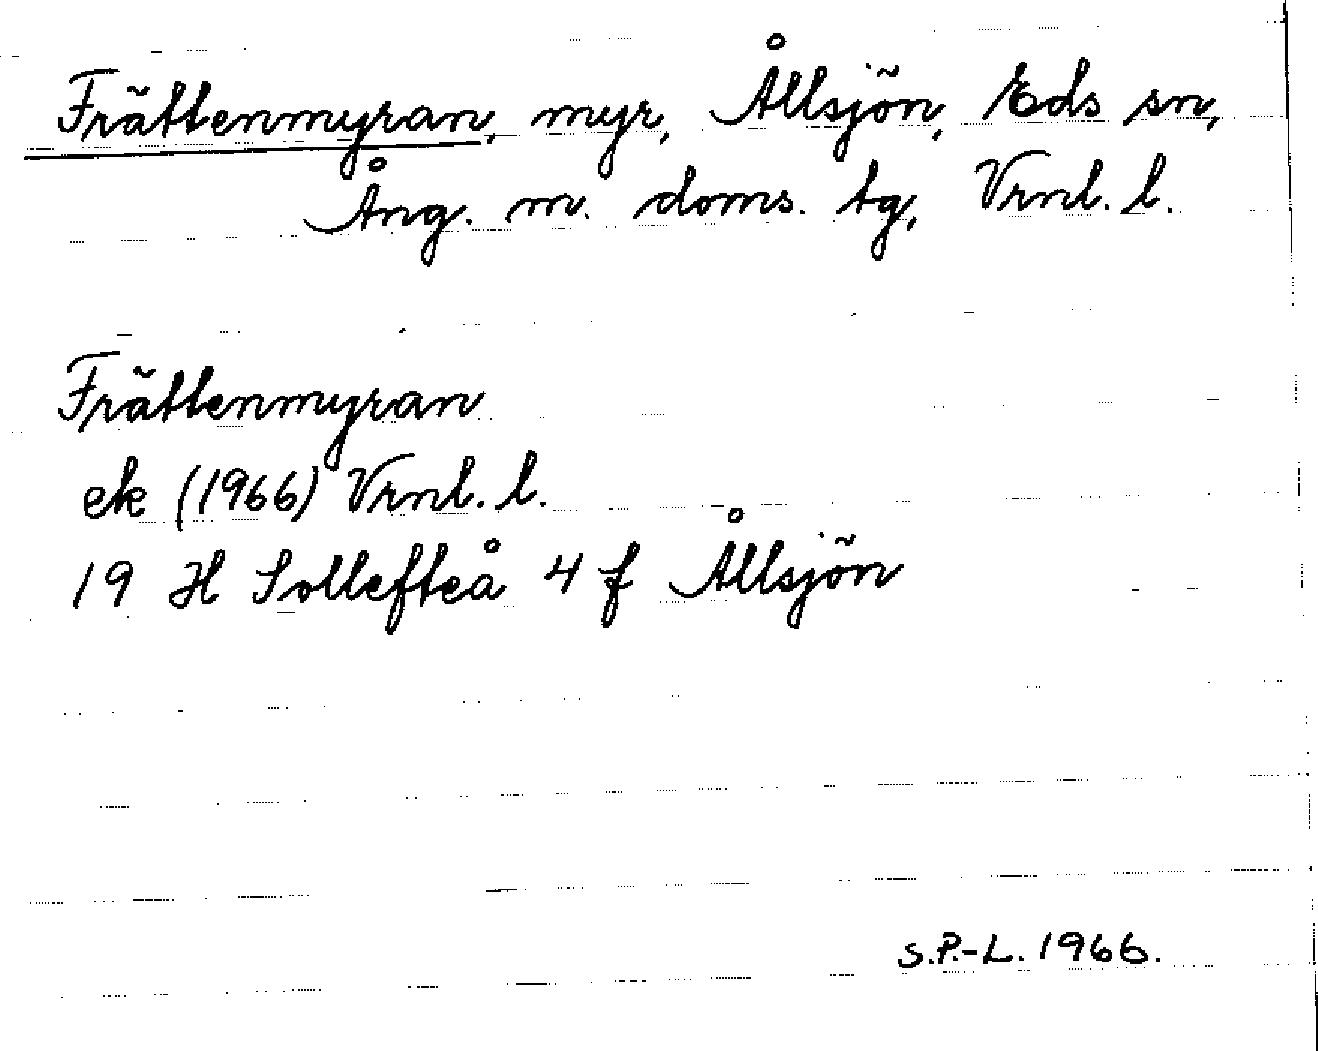 Frättenmyran, myr, Ållsjön, Eds sn,
Ång. m. doms. tg, Vrnl. l.
Frättenmyran
ek (1966) Vrnl. l.
19 H Sollefteå 4 f Ållsjön
S.P.-L. 1966.